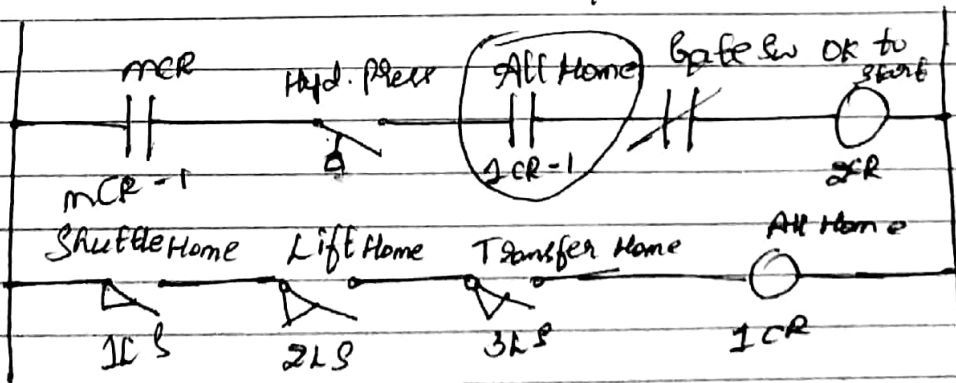 MCR Hyd. Press All Home Gate Sw OK to
Start
MCR-1 1CR-1 2CR
Shuttle Home Lift Home Transfer Home All Home
1LS 2LS 3LS 1CR